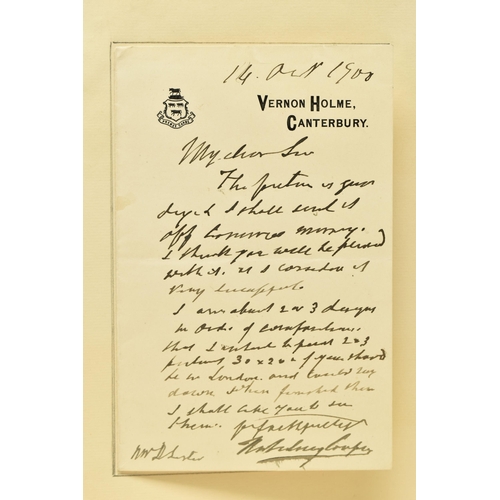 14. Oct 1900
VERNON HOLME,
CANTERBURY.
My dear Sir
The picture is quite
dry & I shall send it
off tomorrow morning.
I think you will be pleased
with it. as I consider it
very
I am about 2 or 3 designs
in order of
that I intend to paint 2 or 3
pictures 30 x 20 if you should
be in London and could run
down when finished then
I shall like you to see
them.
Sidney Cooper